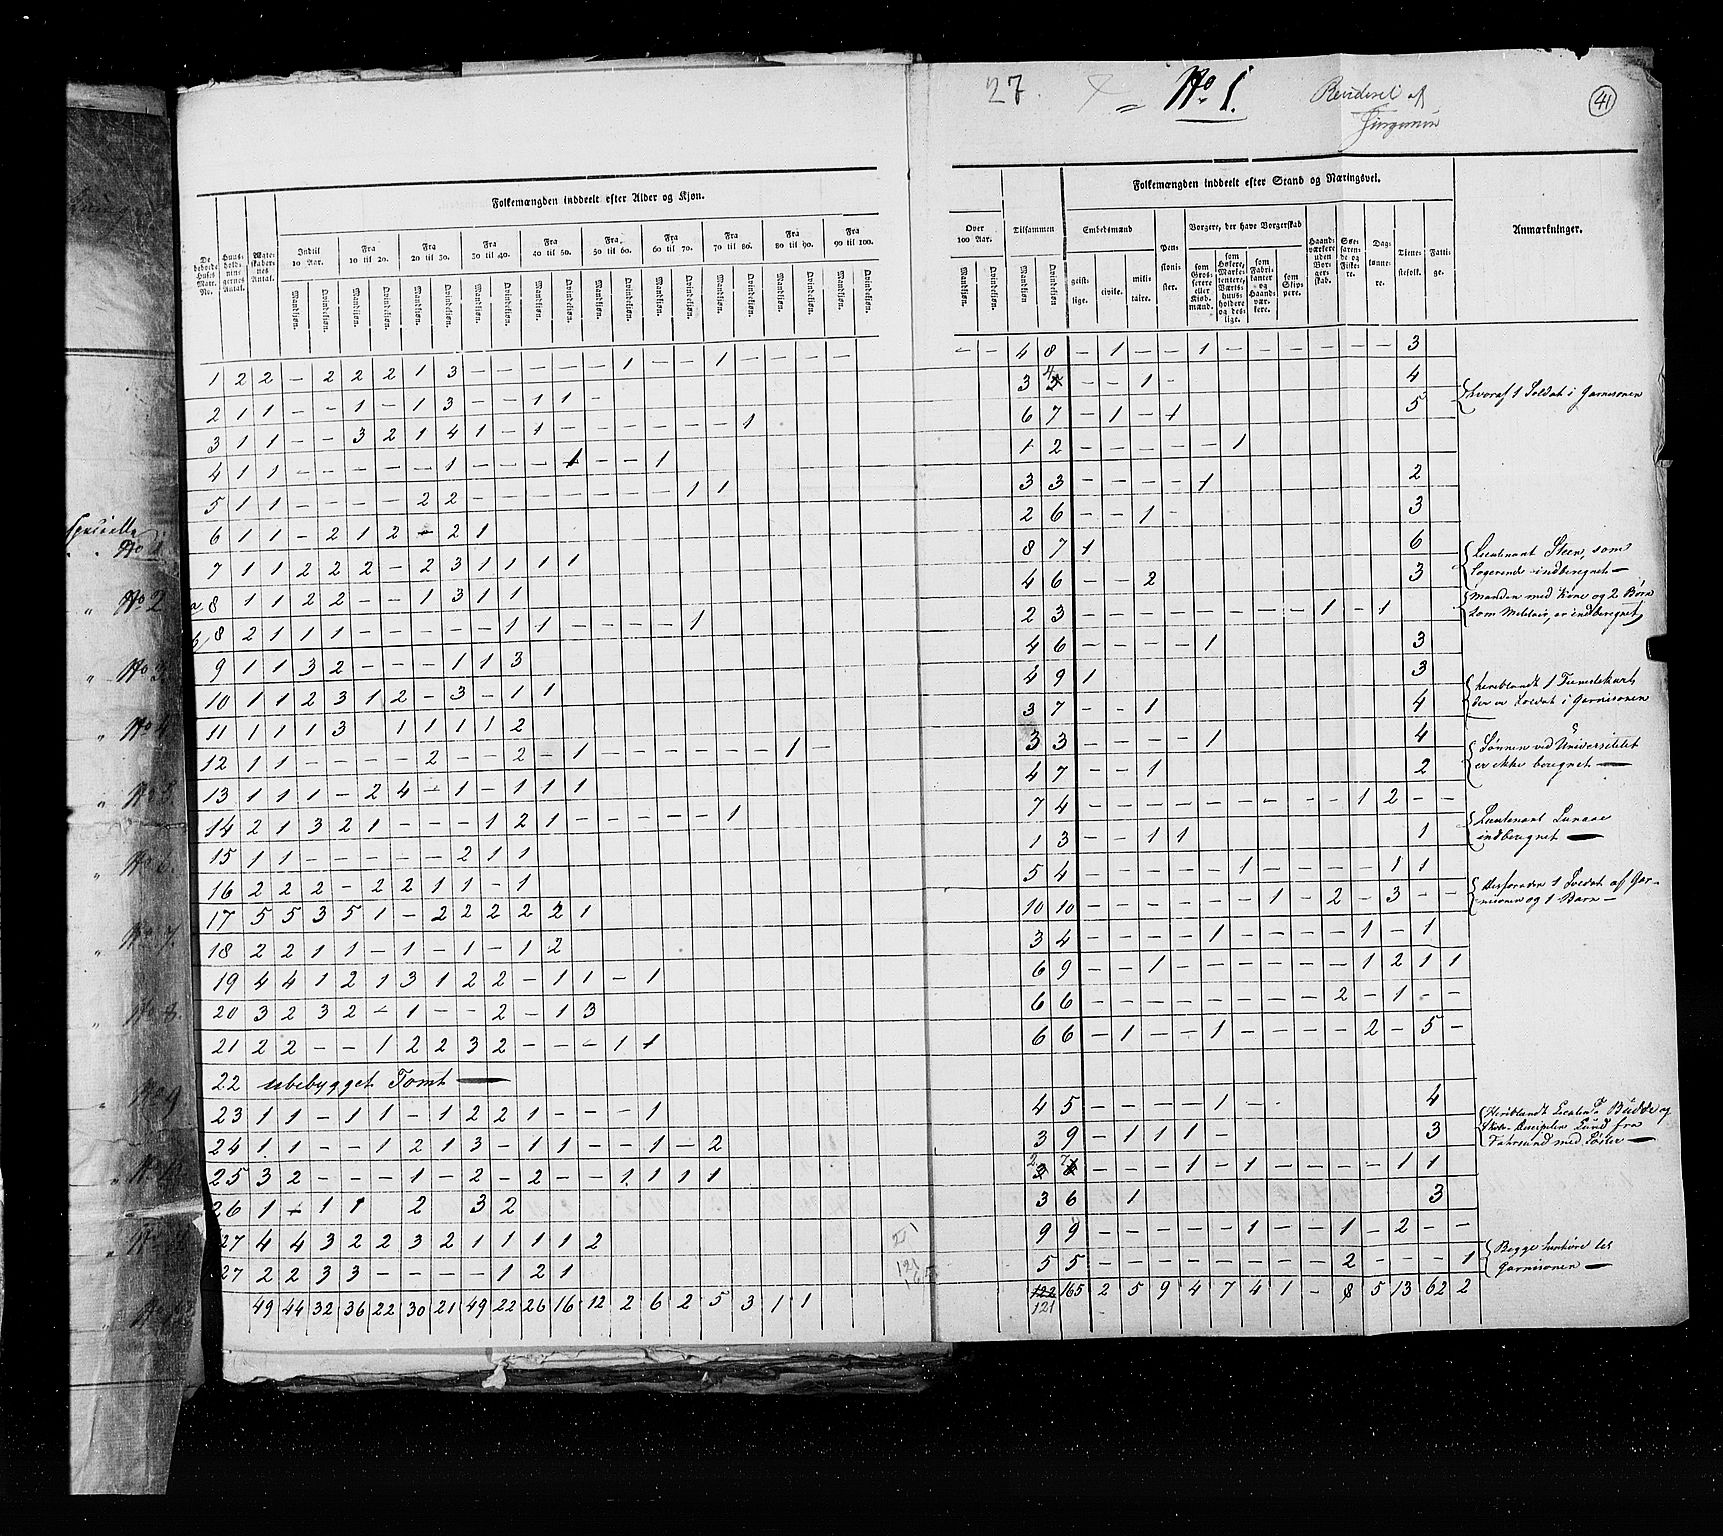 27. No 1.
41
Folkemængden inddeelt efter Alder og Kjøn.
Folkemængden inddeelt efter Stand og Næringsvei.
De beboede Huses Matr. No.
Huusholdningernes Antal.
Ægteskabernes Antal.
Indtil 10 Aar.
Fra 10 til 20.
Fra 20 til 30.
Fra 30 til 40.
Fra 40 til 50.
Fra 50 til 60.
Fra 60 til 70.
Fra 70 til 80.
Fra 80 til 90.
Fra 90 til 100.
Over 100 Aar.
Tilsammen
Mandkiøn. Qvindekiøn.
Embedsmænd
geistlige. civile. militaire.
Pensionister.
Borgere, der have Borgerskab
som Grosserere eller Kiøbmænd.
som Høkere, Marketentere, Værtshuusholdere og deslige.
som Fabrikanter og Haandværkere.
som Skippere.
Haandværkere uden Borgerskab.
Søefarende og Fiskere.
Daglønnere.
Tienestefolk.
Fattige.
Anmærkninger.
1 2 2 – 2 2 2 1 3 – – – – – 1 – – 1 – – – – – – 4 8 – 1 – – 1 – – – – – – 3
2 1 1 – – 1 – 1 3 – – 1 1 – 3 4 – – 1 – 4
3 1 1 – – 3 2 1 4 1 – 1 – – – – – – 1 6 7 – 1 – 1 5
4 1 1 – – – – – 1 – – – 1 – – 1 1 2 – – – – – 1
5 1 1 – – – – 2 2 – – – – – – – 1 1 3 3 – – – – 1 2
6 1 1 – 2 1 2 – 2 1 2 6 – – 1 – 3
7 1 1 2 2 2 – 2 3 1 1 1 1 8 7 1 6
8 1 1 2 2 – – 1 3 1 1 4 6 – – 2 3
8 2 1 1 1 – – – – – 1 1 – – – – 1 2 3 – – – – – – – – 1 – 1
9 1 1 3 2 – – – 1 1 3 4 6 – – – – 1 3
10 1 1 2 3 1 2 – 3 – 1 1 4 9 1 3
11 1 1 1 3 1 1 1 1 2 3 7 – – 1 4
12 1 1 – – – – 2 – – 2 – 1 – – – – – – 1 – 3 3 – – – – 1 4
13 1 1 1 – 2 4 – 1 – 1 1 1 4 7 – – 1 2
14 2 1 3 2 1 – – – 1 2 1 – – – – – 1 7 4 – – – – – – – – – 1 2 – –
15 1 1 – – – – – 2 1 1 1 3 – – 1 1 1
16 2 2 2 – 2 2 1 1 – 1 5 4 – – – – – 1 – – – – 1 1
17 5 5 3 5 1 – 2 2 2 2 2 1 10 10 – – – – – – 1 – 2 – 3 – –
18 2 2 1 1 – 1 – 1 – 1 2 3 4 – – – – 1 – – – – 1 – 1
19 4 4 1 2 1 3 1 2 2 – 1 1 – 1 6 9 – – 1 – – – – – – 1 2 1 1
20 3 2 3 2 – 1 – – 2 – 1 3 6 6 – – – – – – – – 2 – 1 – –
21 2 2 – – 1 2 2 3 2 – – – 1 1 6 6 – 1 – – 1 – – – – 2 – 5 –
22 ubebygget Tomt —
23 1 1 – 1 1 – 1 2 2 1 – – – 1 4 5 – – – – 1 – – 4
24 1 1 – – 1 2 1 3 – 1 1 – – 1 – 2 3 9 – 1 1 1 – 3
25 3 2 – – – 1 – 2 – 2 – – 1 1 1 1 2 7 – – – 1 – 1 – – – – 1 1
26 1 – 1 1 2 3 2 3 6 1 3
27 4 4 3 2 2 3 2 1 1 1 1 2 9 9 – – – – – 1 – – 1 – 2 – –
27 2 2 3 3 – – – – 1 2 1 5 5 – – – – – – – – 2 – – – 1
49 44 32 36 22 30 21 49 22 26 16 12 2 6 2 5 3 1 1 122 165 2 5 9 4 7 4 1 – 8 5 13 62 2
121
hvoraf 1 Soldat i Garnisonen
Lieutenant Steen, som
Logerende indberegnet —
Manden med Kone og 2 Børn
som Militair, er indberegnet
heriblandt 1
der er Soldat i Garnisonen
Sønnen ved Universitetet
er ikke beregnet —
Lieutenant
indberegnet —
desforuden 1 Soldat af Gar-
nisonen og 1 Barn —
Heriblandt Lieuten. Budde og
Lund fra
med
Begge henhøre til
Garnisonen —
Specielle
No 1.
" No 2
" No 3
" No 4
" No 7.
" No 8.
" No 9